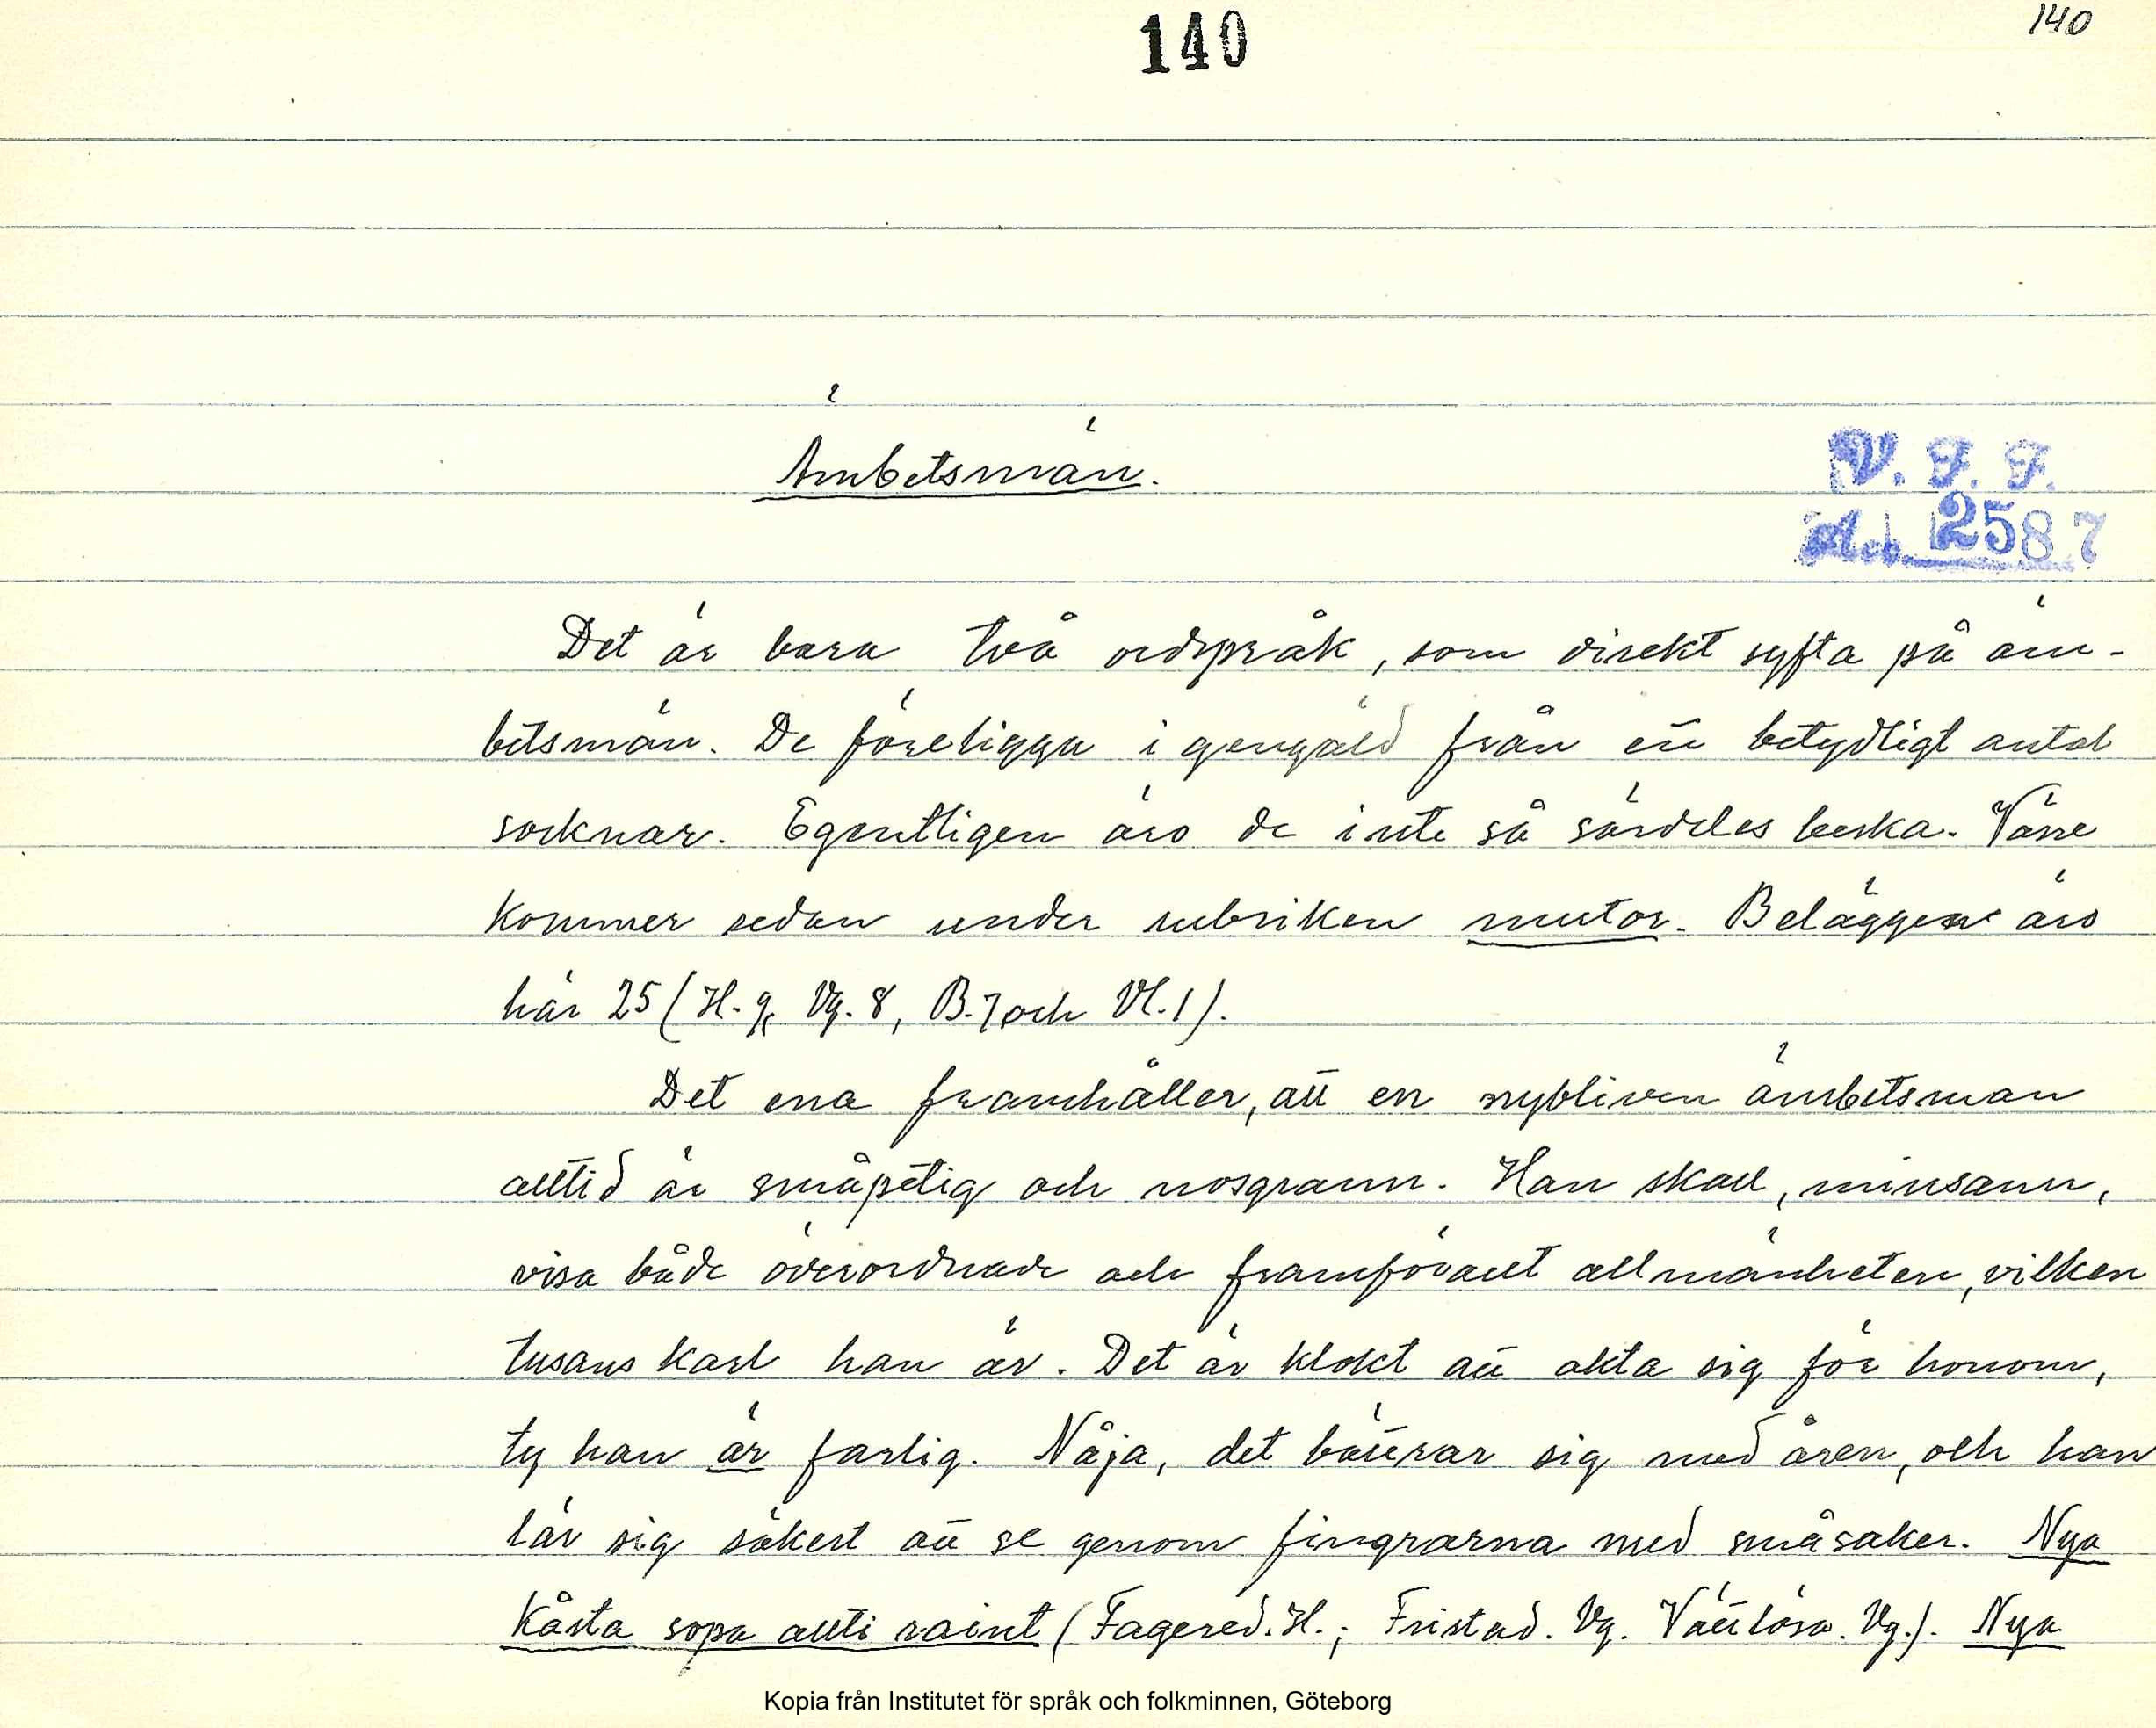 140
140
Ämbetsmän.
V. F. F.
Acc. 2587
Det är bara två ordspråk, som direkt syfta på äm-
betsmän. De föreligga i gengäld från ett betydligt antal
socknar. Egentligen äro de inte så särdeles beska. Värre
kommer sedan under rubriken mutor. Beläggen äro
här 25 (H. 9, Vg. 8, B. 7 och Vl. 1).
Det ena framhåller, att en nybliven ämbetsman
alltid är småpetig och nosgrann. Han skall, minsann,
visa både överordnade och framförallt allmänheten, vilken
tusans karl han är. Det är klokt att akta sig för honom,
ty han är farlig. Nåja, det bättrar sig med åren, och han
lär sig säkert att se genom fingrarna med småsaker. Nya
kåsta sopa allti raint (Fagered. H.; Fristad. Vg. Vättlösa. Vg.). Nya
Kopia från Institutet för språk och folkminnen, Göteborg